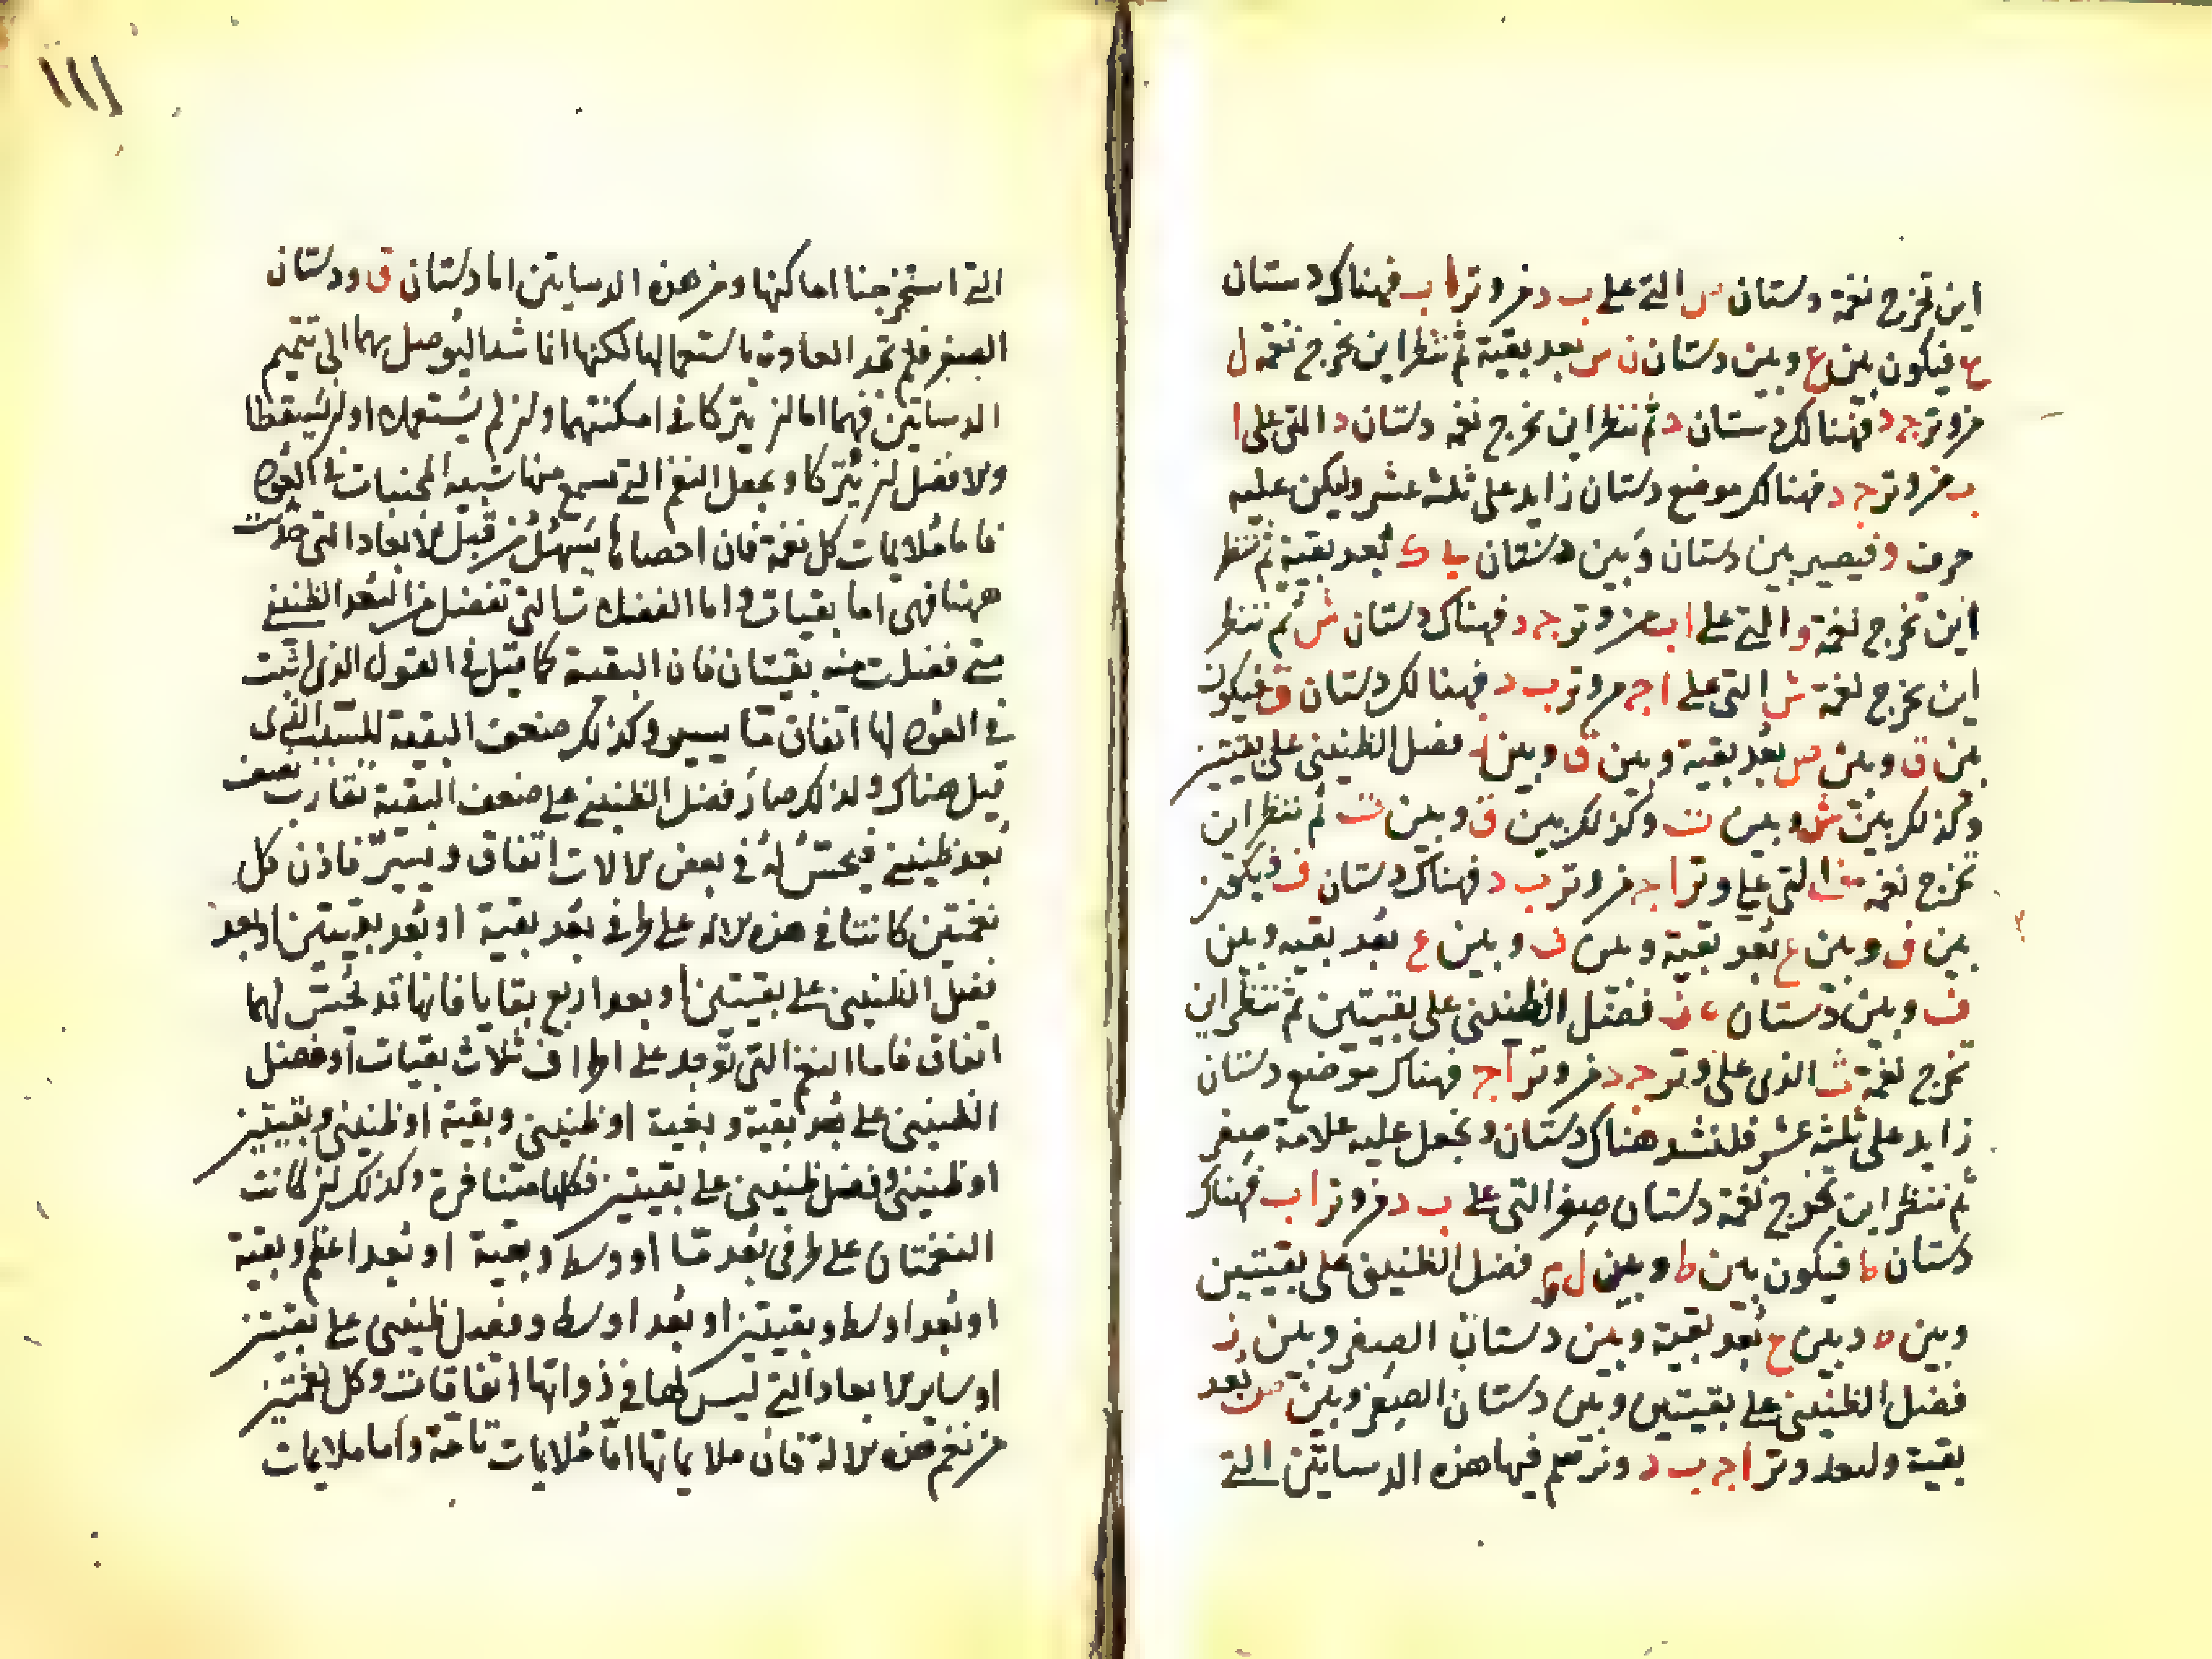 اين تخرج نغمة دستان س التى على ب د من وتر ا ب فهناك دستان
ع فيكون بين ع وبين دستان ن س بعد بقية ثم ننظر اين تخرج نغمة ل
من وتر ج د فهنالك دستان د ثم ننظر اين تخرج نغمة دستان د التى على ا
ب من وتر ج د فهنالك موضع دستان زايد على ثلثة عشر وليكن عليه
حرف و فيصير بين دستان و بين دستان ي ك بعد بقية ثم ننظر
اين تخرج نغمة و التى على ا ب من وتر ج د فهناك دستان ش ثم ننظر
اين تخرج نغمة ش التى على ا ج من وتر ب د فهنالك دستان ق فيكون
بين ق وبين س بعد بقية وبين ق وبين فضل الطنينى على بقيتين
وكذلك بين ش وبين ت وكذلك بين ق وبين ث ثم ننظر اين
تخرج نغمة التى على وتر ا ج من وتر ب د فهناك دستان ف فيكون
بين ف وبين ع بعد بقية وبين ف وبين ع بعد بقيه وبين
ف وبين دستان ن فضل الطنينى على بقيتين ثم ننظر اين
تخرج نغمة ث الذى على وتر ج د من وتر ا ج فهناك موضع دستان
زايد على ثلثة عشر فلنشد هناك دستان ونجعل عليه علامة صفر
ثم ننظر اين تخرج نغمة دستان صفر التى على ب د من وتر ا ب فهناك
دستان ط فيكون بين ط وبين ل م فضل الطنينى على بقيتين
وبين ه وبين ح بعد بقية وبين دستان الصفر وبين ز
فضل الطنينى على بقيتين وبين دستان الصفر وبين س بعد
بقية ولنعد وتر ا ج ب د ونرسم فيها هذه الدساتين التى
التى استخرجنا اماكنها ومن هذه الدساتين اما دستان ق ودستان
الصفر فلم تجر العادة باستعمالها لكنها انما شدا ليوصل بهما الى تتميم
الدساتين فهما اما ان يتركا فى امكنتهما وان لم يستعملا او ان يسقطا
والافضل ان يتركا ونجعل النغم التى تسمع منها شبيه المجنبات فى القوة
فاما ملايمات كل نغمة فان احصاها يسهل من قبل الابعاد التى حدثت
ههنا فهى اما بقيات واما الفضلات التى تفضل من البعد الطنينى
متى فضلت منه بقيتان فان البقية كما قيل فى القول الذى اثبت
فى القوة لها اتفاق ما يسير وكذلك ضعف البقية للسبب الذى
قيل هناك ولذلك صار فضل الطنينى على ضعف البقية تقارب نصف
بعد طنينى فيحس له فى بعض الالات اتفاق ويسير فاذن كل
نغمتين كانتا فى هذه الالة على طرفى بعد بقية او بعد بقيتين او بعد
فضل الطنينى على بقيتين او بعد اربع بقايا فانها قد يحس لهما
اتفاق فاما النغم التى توجد على اطراف ثلاث بقيات او فضل
الطنينى على بعد بقية وبقية او طنينى وبقية او طنينى وبقيتين
او طنينى وفضل طنينى على بقيتين فكلها متنافرة وكذلك ان كانت
النغمتان على طرفى بعد ما اوسط وبقية او بعد اعظم وبقية
او بعد اوسط وبقيتين او بعد اوسط وفضل طنينى على بقيتين
او ساير الابعاد التى ليس لها فى ذواتها اتفاقات وكل نغمتين
من نغم هذه الالة فان ملايماتها اما ملايمات تامة واما ملايمات